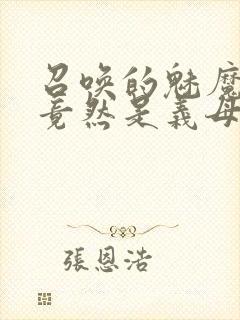 召唤的魅魔
竟然是義母
張恩浩